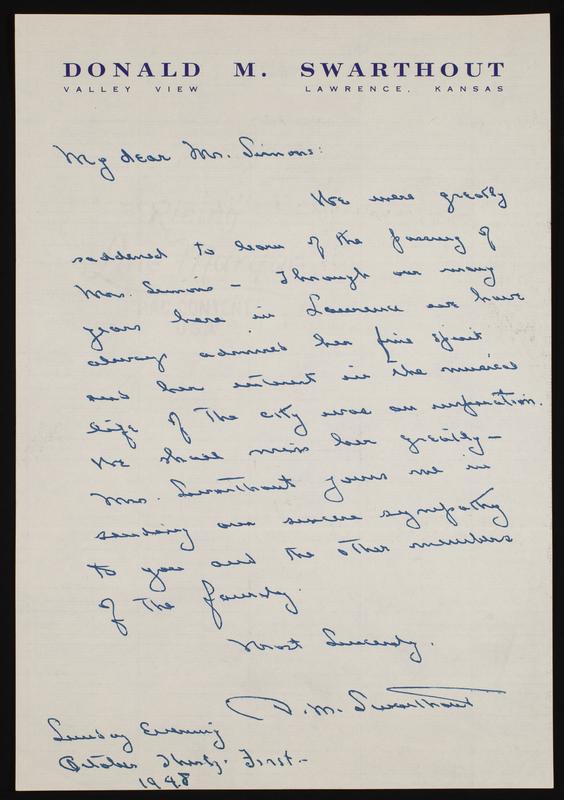 DONALD M. SWARTHOUT
VALLEY VIEW LAWRENCE, KANSAS
My dear Mr. Simons:
We were greatly
saddened to learn of the passing of
Mrs. Simons - Through our many
years here in Lawrence we have
always admired her fine spirit
and her interest in the musical
life of the city was an inspiration.
We shall miss her greatly -
Mrs. Swarthout joins me in
sending our sincere sympathy
to you and the other members
of the family.
Most Sincerely.
D. M. Swarthout
Sunday Evening
October Thirty-First.-
1948